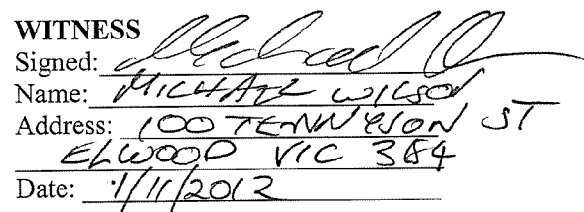 WITNESS
Signed:
Name: MICHAEL WILSON
Address: 100 TENNYSON ST
ELWOOD VIC 384
Date: 1/11/2012